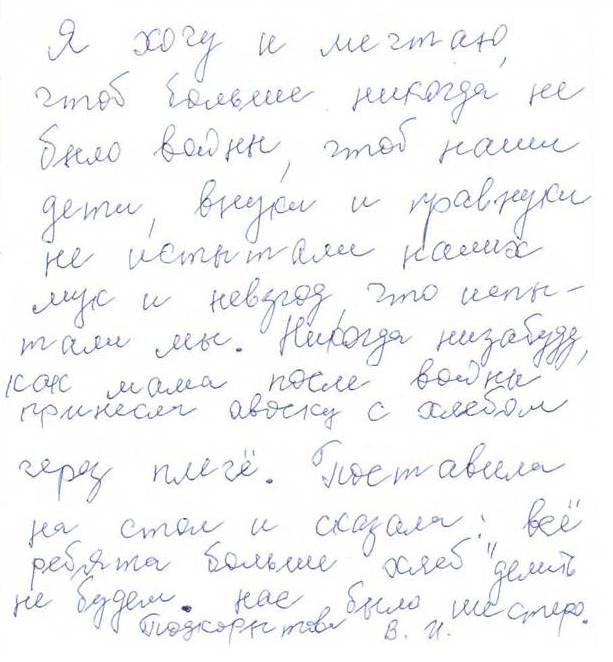 Я хочу и мечтаю,
чтоб больше никогда не
было войны, чтоб наши
дети, внуки и правнуки
не испытали наших
мук и невзгод, что испы-
тали мы. Никогда низабуду,
как мама после войны
принесла авоську с хлебом
через плечё. Поставила
на стол и сказала: всё
ребята больше хлеб "делить
не будем. нас было шестеро.
В. И.